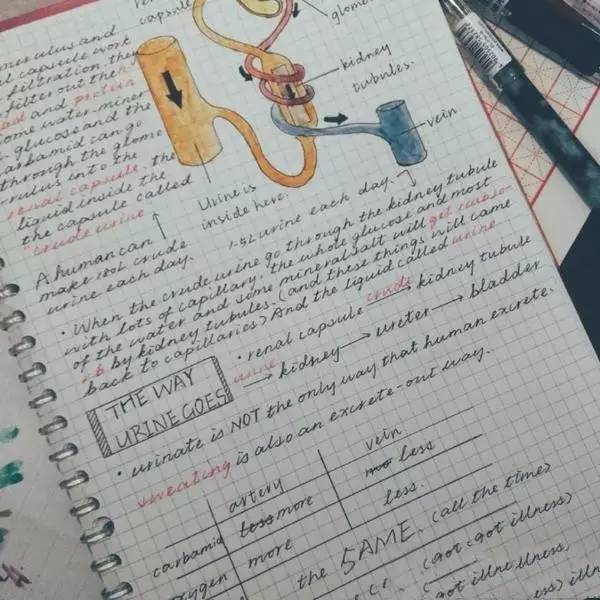 capsule
glome
merulus and
l capsule work
filtration, they
filter out the
and protein
ome water, miner
glucose and the
carbamid can go
through the glome
rulus into the
renal capsule, the
liquid inside the
the capsule called
"crude urine"
A human can
make 180L crude
urine each day.
kidney
tubules.
vein
Urine is
inside here.
1.5L urine each day.
· When the crude urine go through the kidney tubule
with lots of capillary, the whole glucose and most
of the water and some mineral salt will get reabso-
rb by kidney tubules. (and these things will came
back to capillaries) And the liquid called urine
· renal capsule crude → kidney tubule
urine → kidney → ureter → bladder
THE WAY
URINE GOES
· urinate is NOT the only way that human excrete.
sweating is also an excrete-out way.
artery vein
carbamid less more mo less
oxygen more less.
the SAME. (all the time)
(got illness)
got illness,
illn